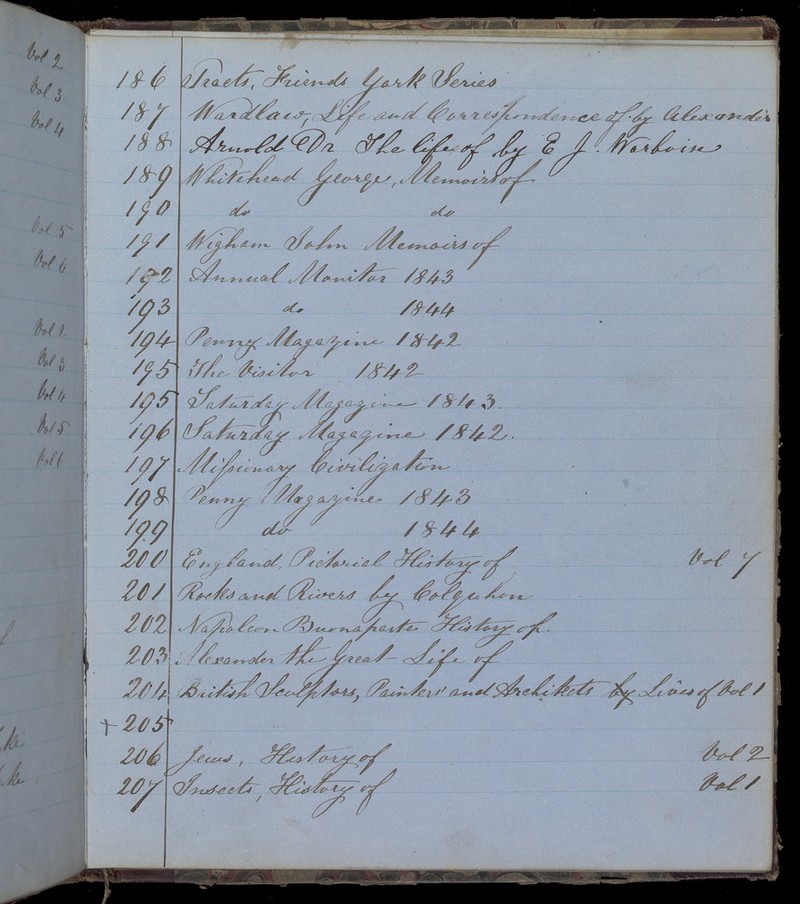 Vol 2
Vol 3
Vol 4
Vol 5
Vol 6
Vol 2
Vol 3
Vol 4
Vol 5
Vol 6
186 Tracts, Friends York Series
187 Wardlaw, Life and Correspondence of by Alexander
188 Arnold Dr The life of by E J. Worboise
189 Whitehead George, Memoirs of
190 do do
191 Wigham John Memoirs of
192 Annual Monitor 1843
193 do 1844
194 Penny Magazine 1842
195 The Visitor 1842
195 Saturday Magazine 1843.
196 Saturday Magazine 1842.
197 Missionary Civilization
198 Penny Magazine 1843
199 do 1844
200 England, Pictorial History of Vol 7
201 Rocks and Rivers by Colquhon
202 Napoleon Buonaparte History of.
203 Alexander the Great Life of
204 British Sculptors, Painters and Architects by Lives of Vol 1
+ 205
206 Jews, History of Vol 2
207 Insects, History of Vol 1